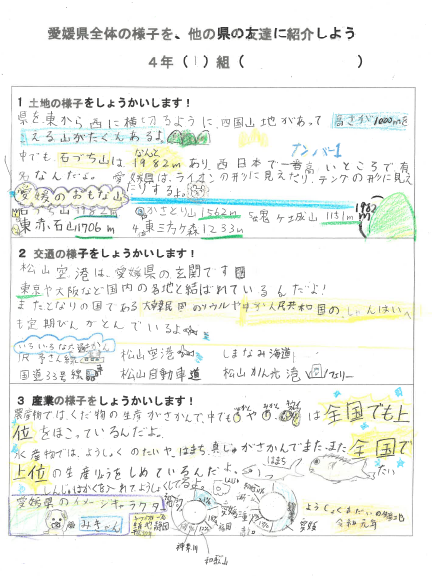 愛媛県全体の様子を、他の県の友達に紹介しよう
4年(1)組(　　)
1 土地の様子をしょうかいします!
県を東から西に横切るように、四国山地があって高さが1000mを
こえる山がたくさんあるよ。
ナンバー1
なんと
中でも、石づち山は1982mあり、西日本で一番高いところで有
名なんだよ。愛媛県は、ライオンの形に見えたり、テングの形に見え
たりするよ。
愛媛のおもな山
石づち山1982m
かさとり山1562m
1131m
1982m
東赤石山1706m
4 東三方ヶ森1233m
2 交通の様子をしょうかいします!
松山空港は、愛媛県の玄関です
東京や大阪など国内の各地と結ばれているんだよ!
またとなりの国である大韓民国のソウルや中か人民共和国の、しゃんはいへ
も定期びんがとんでいるよ
いろいろな
松山空港
しまなみ海道
国道33号線
松山自動車道
松山かん光港
フェリー
3 産業の様子をしょうかいします!
農産物では、くだ物の生産がさかんで、中でも
は全国でも上
位をほこっているんだよ。
水産物では、ようしょくのたいや、はまち、真じゅがさかんでまたまた全国で
上位の生産りょうをしめているんだよ。
はまち
たい
愛媛県のイメージキャラクター
みきゃん
愛媛
神奈川
和歌山
令和元年